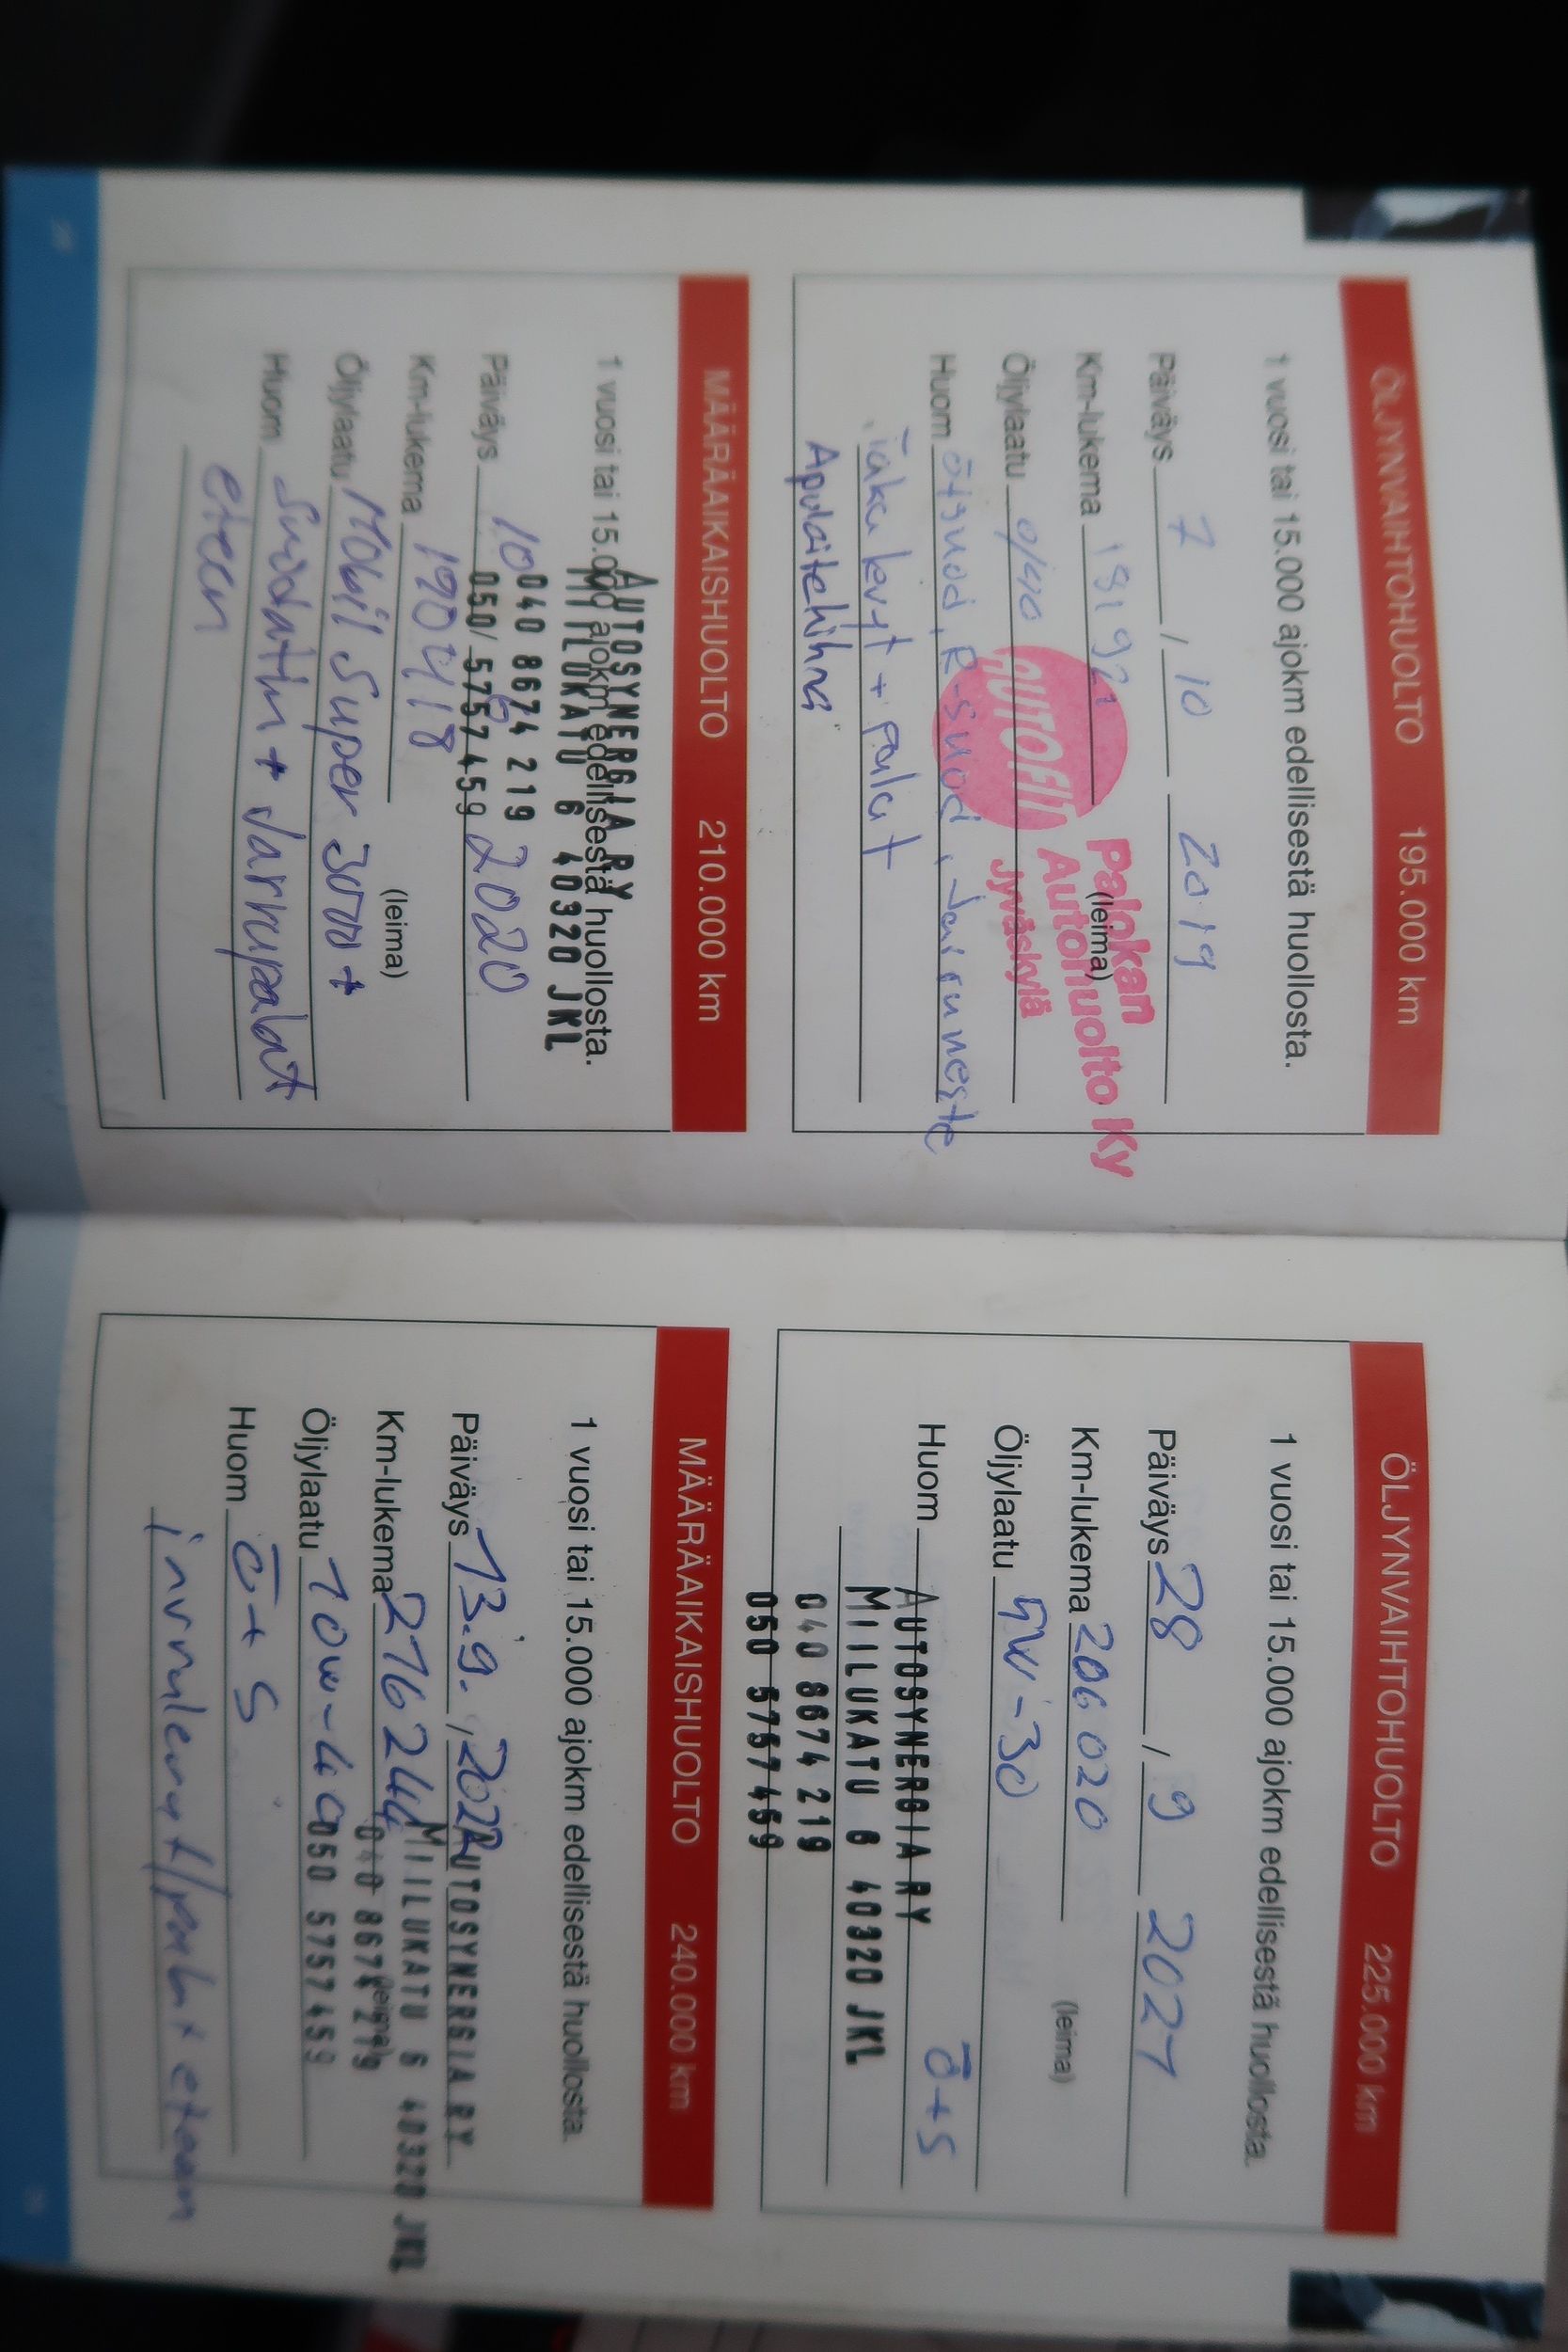 ÖLJYNVAIHTOHUOLTO 195.000 km
1 vuosi tai 15.000 ajokm edellisestä huollosta.
Päiväys 7 / 10 2019
Km-lukema
(leima)
Palokan
Autohuolto Ky
Jyväskylä
AUTOFIT
Öljylaatu 0/40
Huom R-suod, Jarruneste
+ palat
Apulaitehihna
MÄÄRÄAIKAISHUOLTO 210.000 km
1 vuosi tai 15.000 ajokm edellisestä huollosta.
AUTOSYNERGIA RY
MIILUKATU 6 40320 JKL
040 8674 219
050/ 5757459
Päiväys 10 2020
Km-lukema 190418
(leima)
Öljylaatu Mobil Super 3000 +
Huom Suodatin + Jarrupalat
eteen
ÖLJYNVAIHTOHUOLTO 225.000 km
1 vuosi tai 15.000 ajokm edellisestä huollosta.
Päiväys 28 / 9 2021
Km-lukema 206020
(leima)
Öljylaatu 5W-30
Huom Ö+S
AUTOSYNERGIA RY
MIILUKATU 6 40320 JKL
040 8674 219
050 5757459
MÄÄRÄAIKAISHUOLTO 240.000 km
1 vuosi tai 15.000 ajokm edellisestä huollosta.
Päiväys 13.9. / 2022
AUTOSYNERGIA RY
Km-lukema 216244
MIILUKATU 6 40320 JKL
040 8674 219
(leima)
Öljylaatu 10w-40
050 5757459
Huom Ö+S
eteen